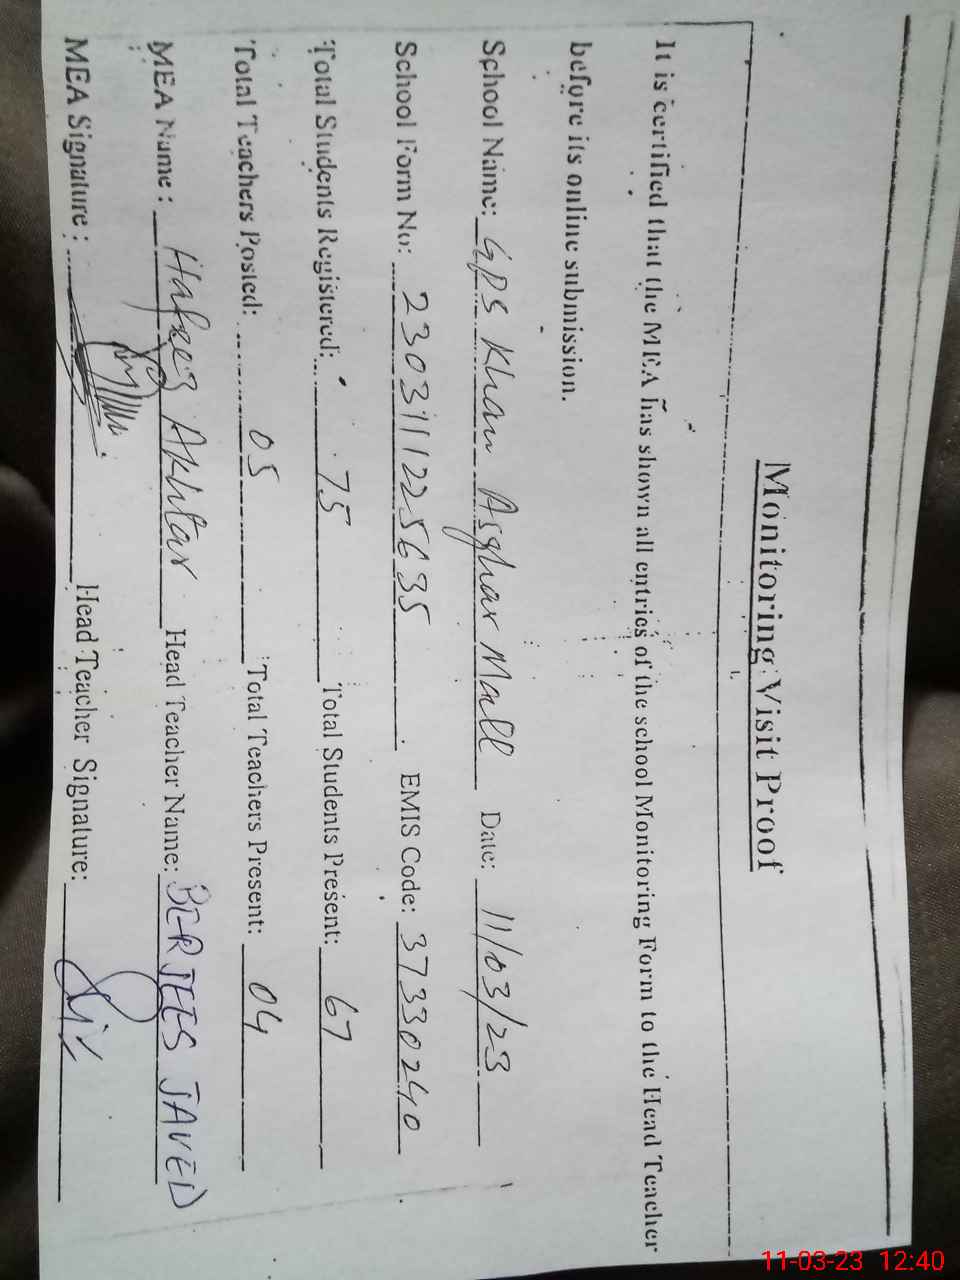 Monitoring Visit Proof
It is certified that the MEA has shown all entries of the school Monitoring Form to the Head Teacher
before its online submission.
School Name: GPS Khan Asghar Mall Date: 11/03/23
School Form No: 2303111225635 EMIS Code: 37330240
Total Students Registered: 75 Total Students Present: 67
Total Teachers Posted: 05 Total Teachers Present: 04
MEA Name: Hafeez Akhtar Head Teacher Name: BERJEES JAVED
MEA Signature: Head Teacher Signature:
11-03-23 12:40